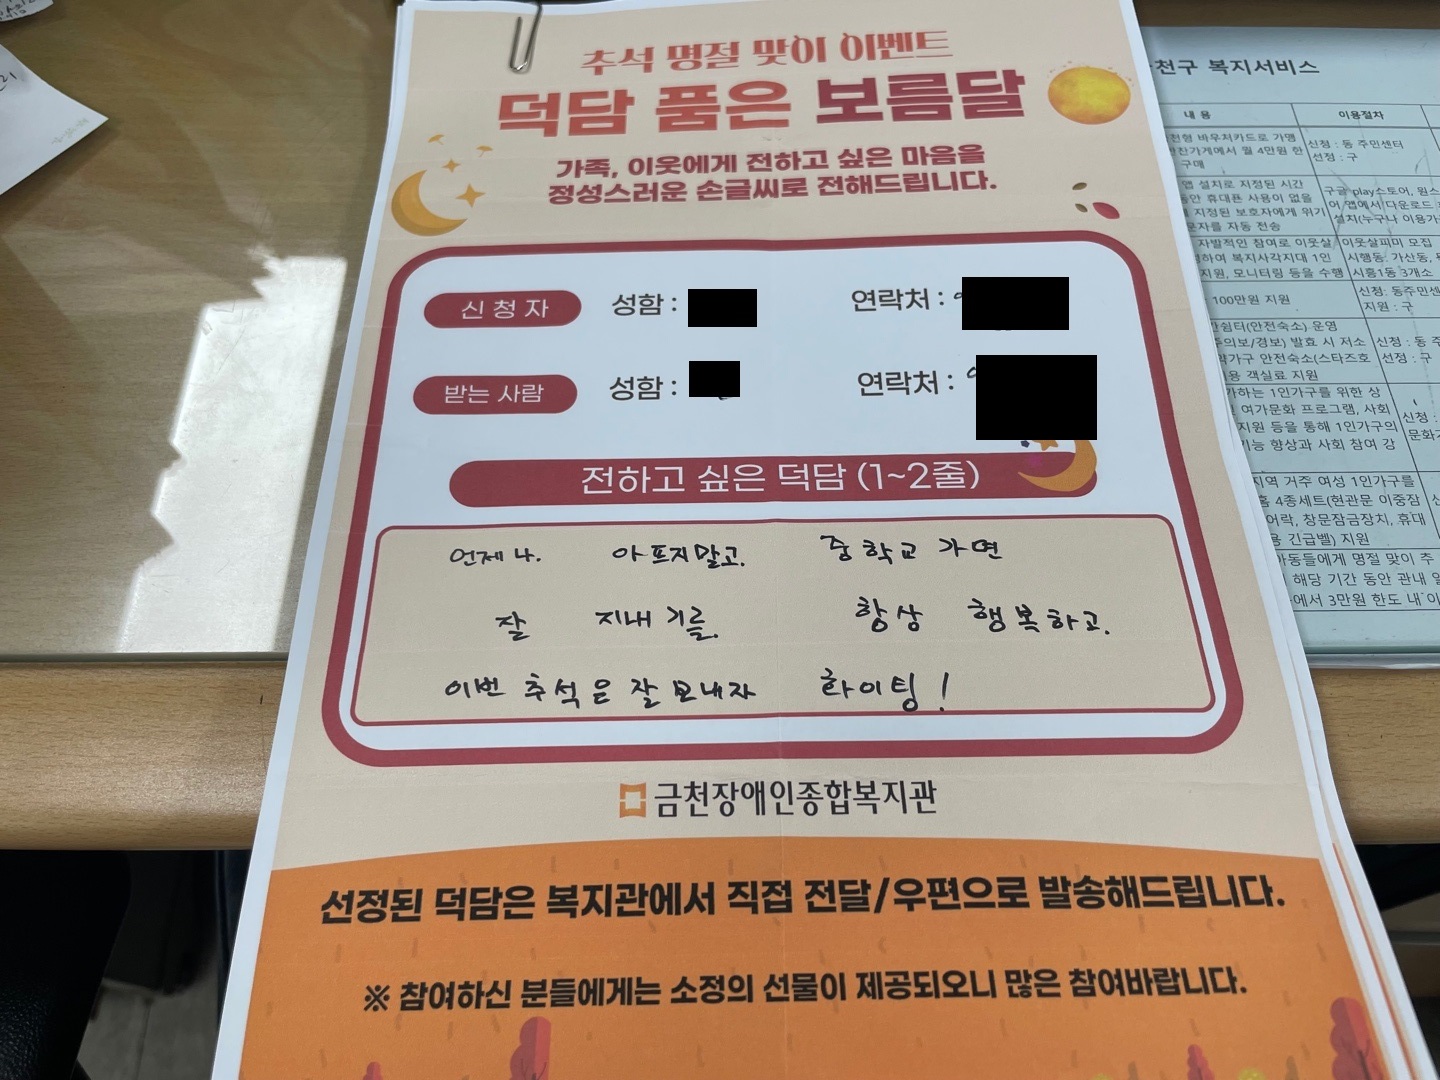 추석 명절 맞이 이벤트
덕담 품은 보름달
가족, 이웃에게 전하고 싶은 마음을
정성스러운 손글씨로 전해드립니다.
신청자 성함 : 연락처 :
받는 사람 성함 : 연락처 :
전하고 싶은 덕담 (1~2줄)
언제나. 아프지말고. 중학교 가면
잘 지내기를. 항상 행복하고.
이번 추석은 잘 보내자 화이팅!
금천장애인종합복지관
선정된 덕담은 복지관에서 직접 전달/우편으로 발송해드립니다.
※ 참여하신 분들에게는 소정의 선물이 제공되오니 많은 참여바랍니다.
천구 복지서비스
내 용 이용절차
천형 바우처카드로 가맹
반찬가게에서 월 4만원 한
구매
신청 : 동 주민센터
선정 : 구
앱 설치로 지정된 시간
동안 휴대폰 사용이 없을
지정된 보호자에게 위기
문자를 자동 전송
구글 play스토어, 원스
어 앱에서 다운로드
설치(누구나 이용가
자발적인 참여로 이웃살
하여 복지사각지대 1인
지원, 모니터링 등을 수행
이웃살피미 모집
시행동: 가산동,
시흥1동 3개소
100만원 지원
신청: 동주민센
지원 : 구
쉼터(안전숙소) 운영
주의보/경보) 발효 시 저소
약가구 안전숙소(스타즈호
용 객실료 지원
신청 : 동 주
선정 : 구
가하는 1인가구를 위한 상
여가문화 프로그램, 사회
지원 등을 통해 1인가구의
기능 향상과 사회 참여 강
신청 :
문화
지역 거주 여성 1인가구를
홈 4종세트(현관문 이중잠
어락, 창문잠금장치, 휴대
용 긴급벨) 지원
아동들에게 명절 맞이 추
해당 기간 동안 관내
에서 3만원 한도 내